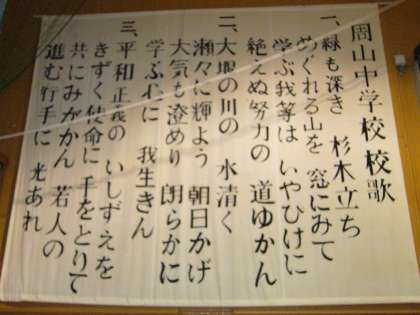 周山中学校校歌
一、緑も深き 杉木立ち
めぐれる山を 窓にみて
学ぶ我等は いやひけに
絶えぬ努力の 道ゆかん
二、大堰の川の 水清く
瀬々に輝よう 朝日かげ
大気も澄めり 朗らかに
学ぶ心に 我生きん
三、平和正義の いしずえを
きずく使命に 手をとりて
共にみがかん 若人の
進む行手に 光あれ